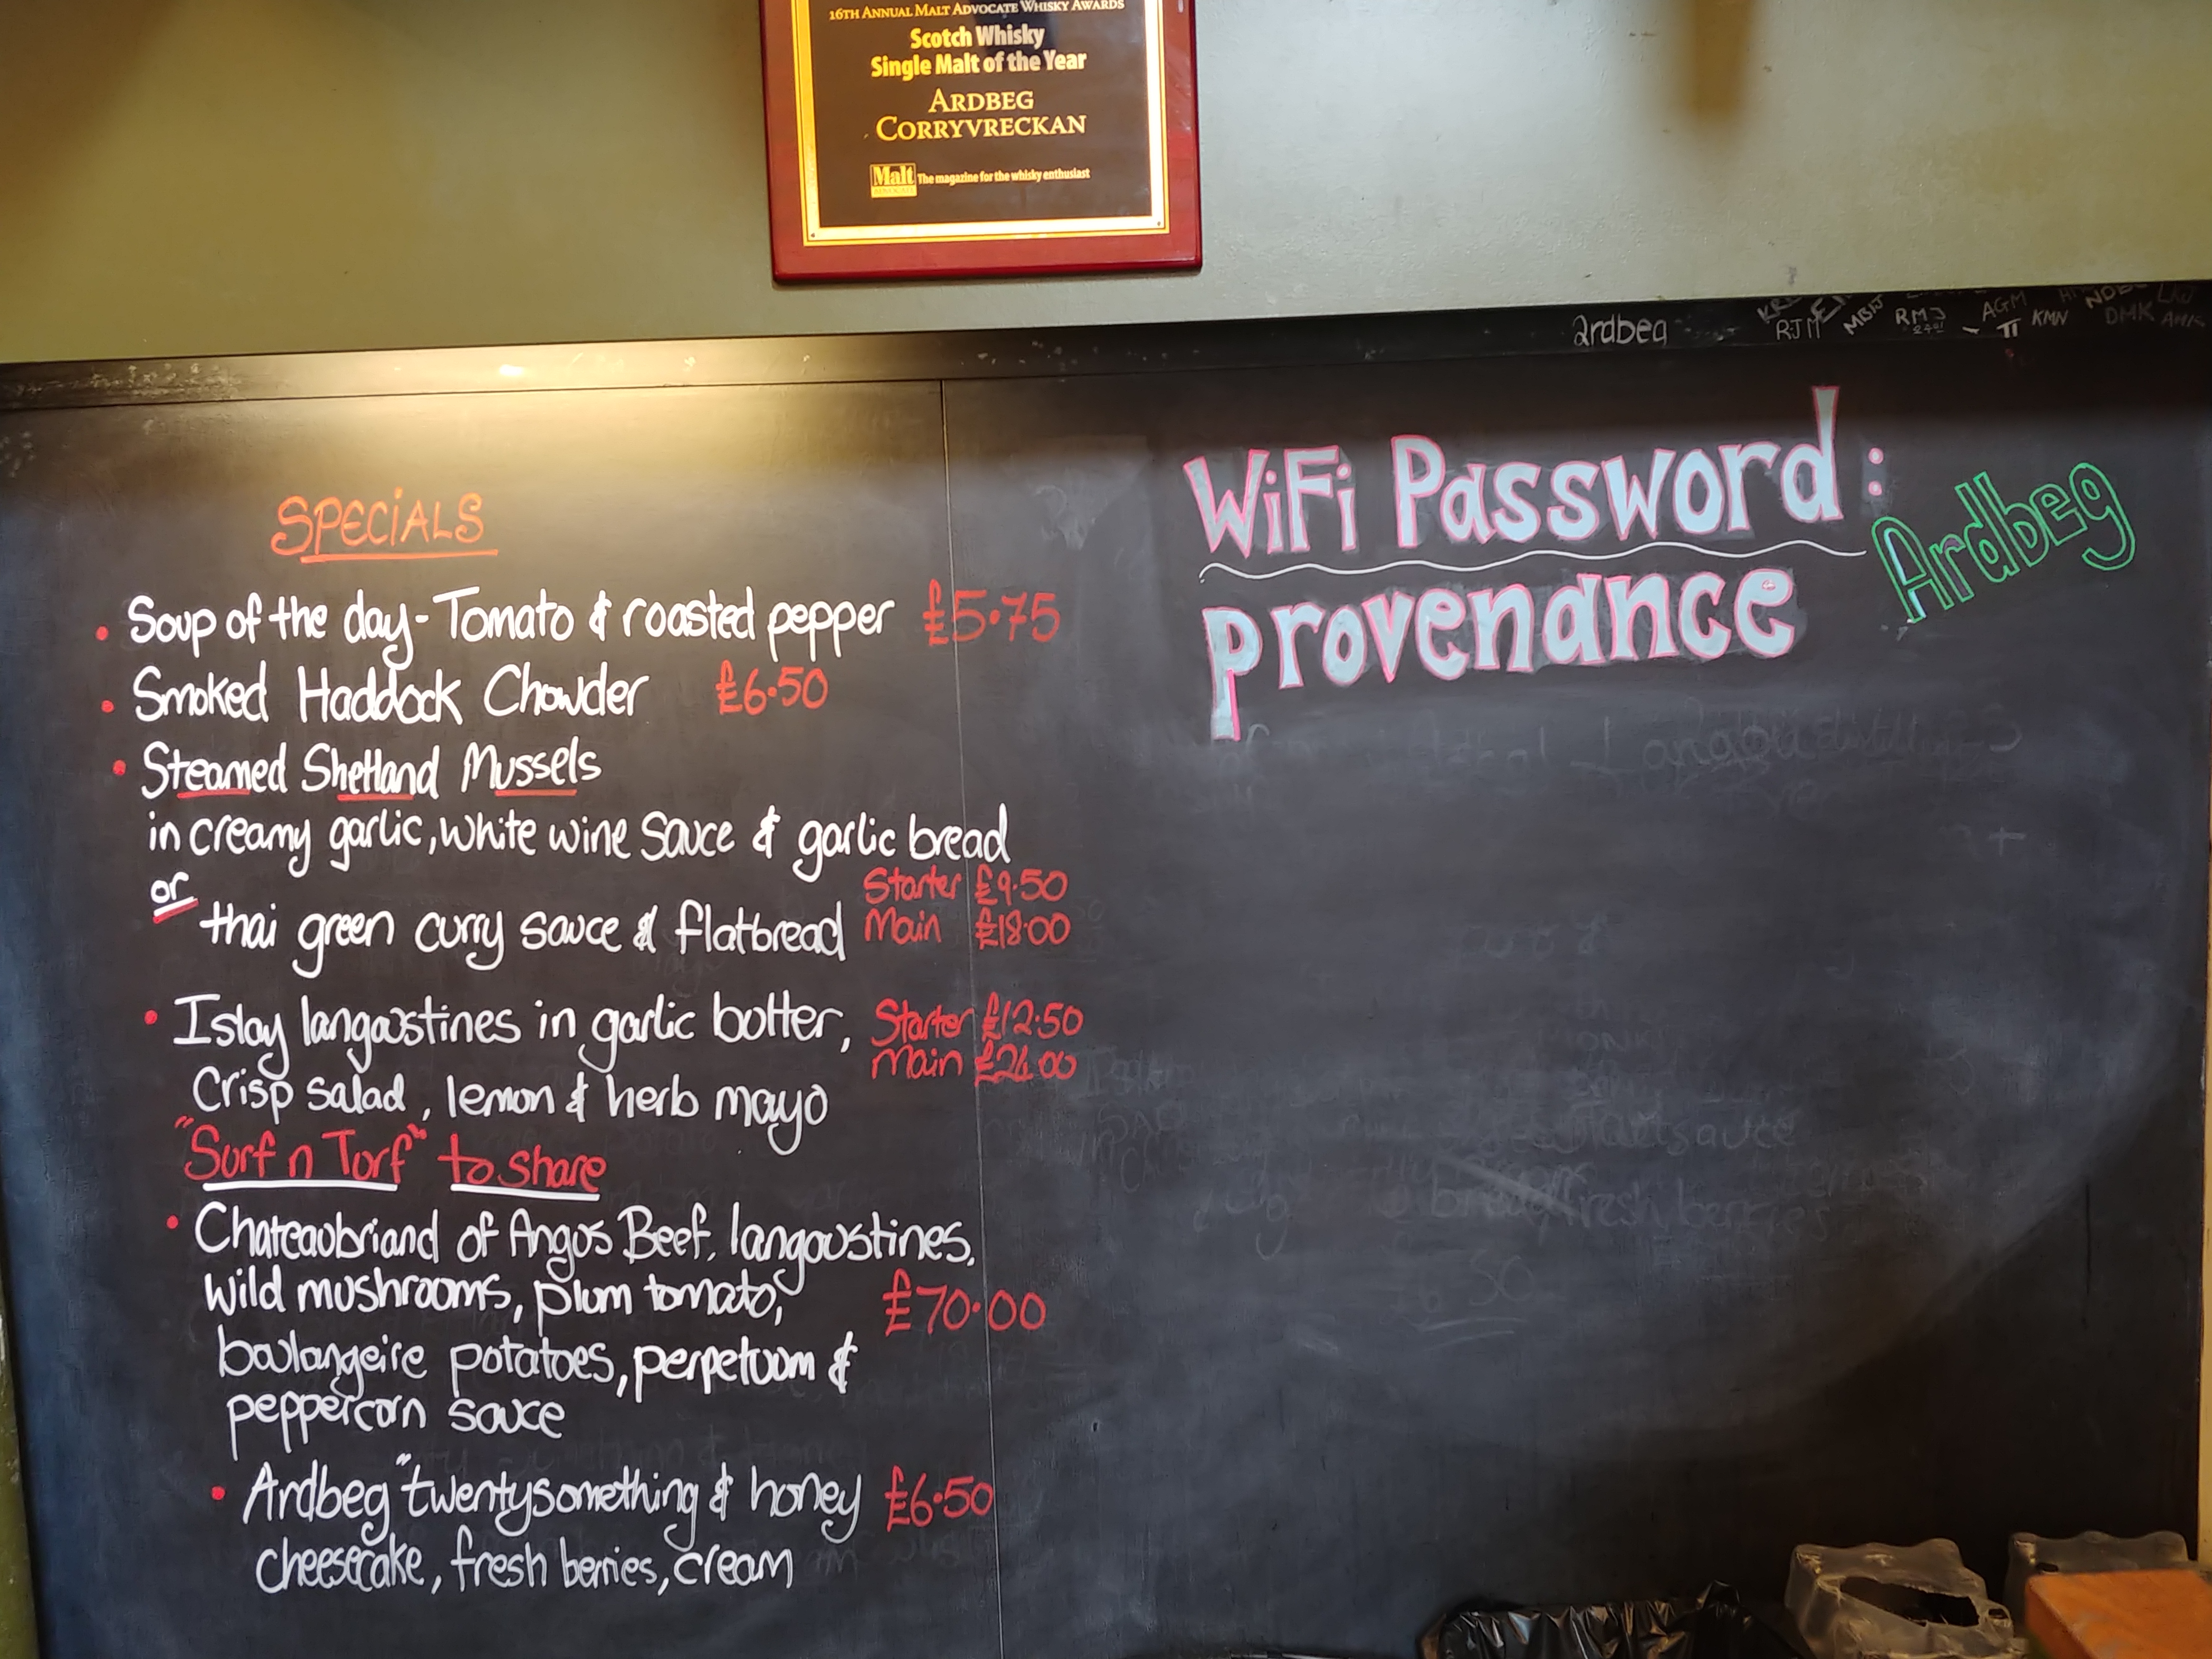 16TH ANNUAL MALT ADVOCATE WHISKY AWARDS
Scotch Whisky
Single Malt of the Year
ARDBEG
CORRYVRECKAN
Malt ADVOCATE The magazine for the whisky enthusiast
ardbeg
RJM MBIJ RMJ AGM TT KMN DMK
SPECiALS
• Soup of the day - Tomato & roasted pepper £5.75
• Smoked Haddock Chowder £6.50
• Steamed Shetland Mussels
in creamy garlic, white wine Sauce & garlic bread
or
Starter £9.50
thai green curry sauce & flatbread Main £18.00
• Islay langoustines in garlic butter, Starter £12.50
Main £24.00
Crisp salad, lemon & herb mayo
"Surf n Turf" to share
• Chateaubriand of Angus Beef, langoustines,
wild mushrooms, plum tomato,
£70.00
boulangeire potatoes, perpetuum &
peppercorn sauce
• Ardbeg "twentysomething & honey £6.50
cheesecake, fresh berries, cream
WiFi Password:
Ardbeg
provenance